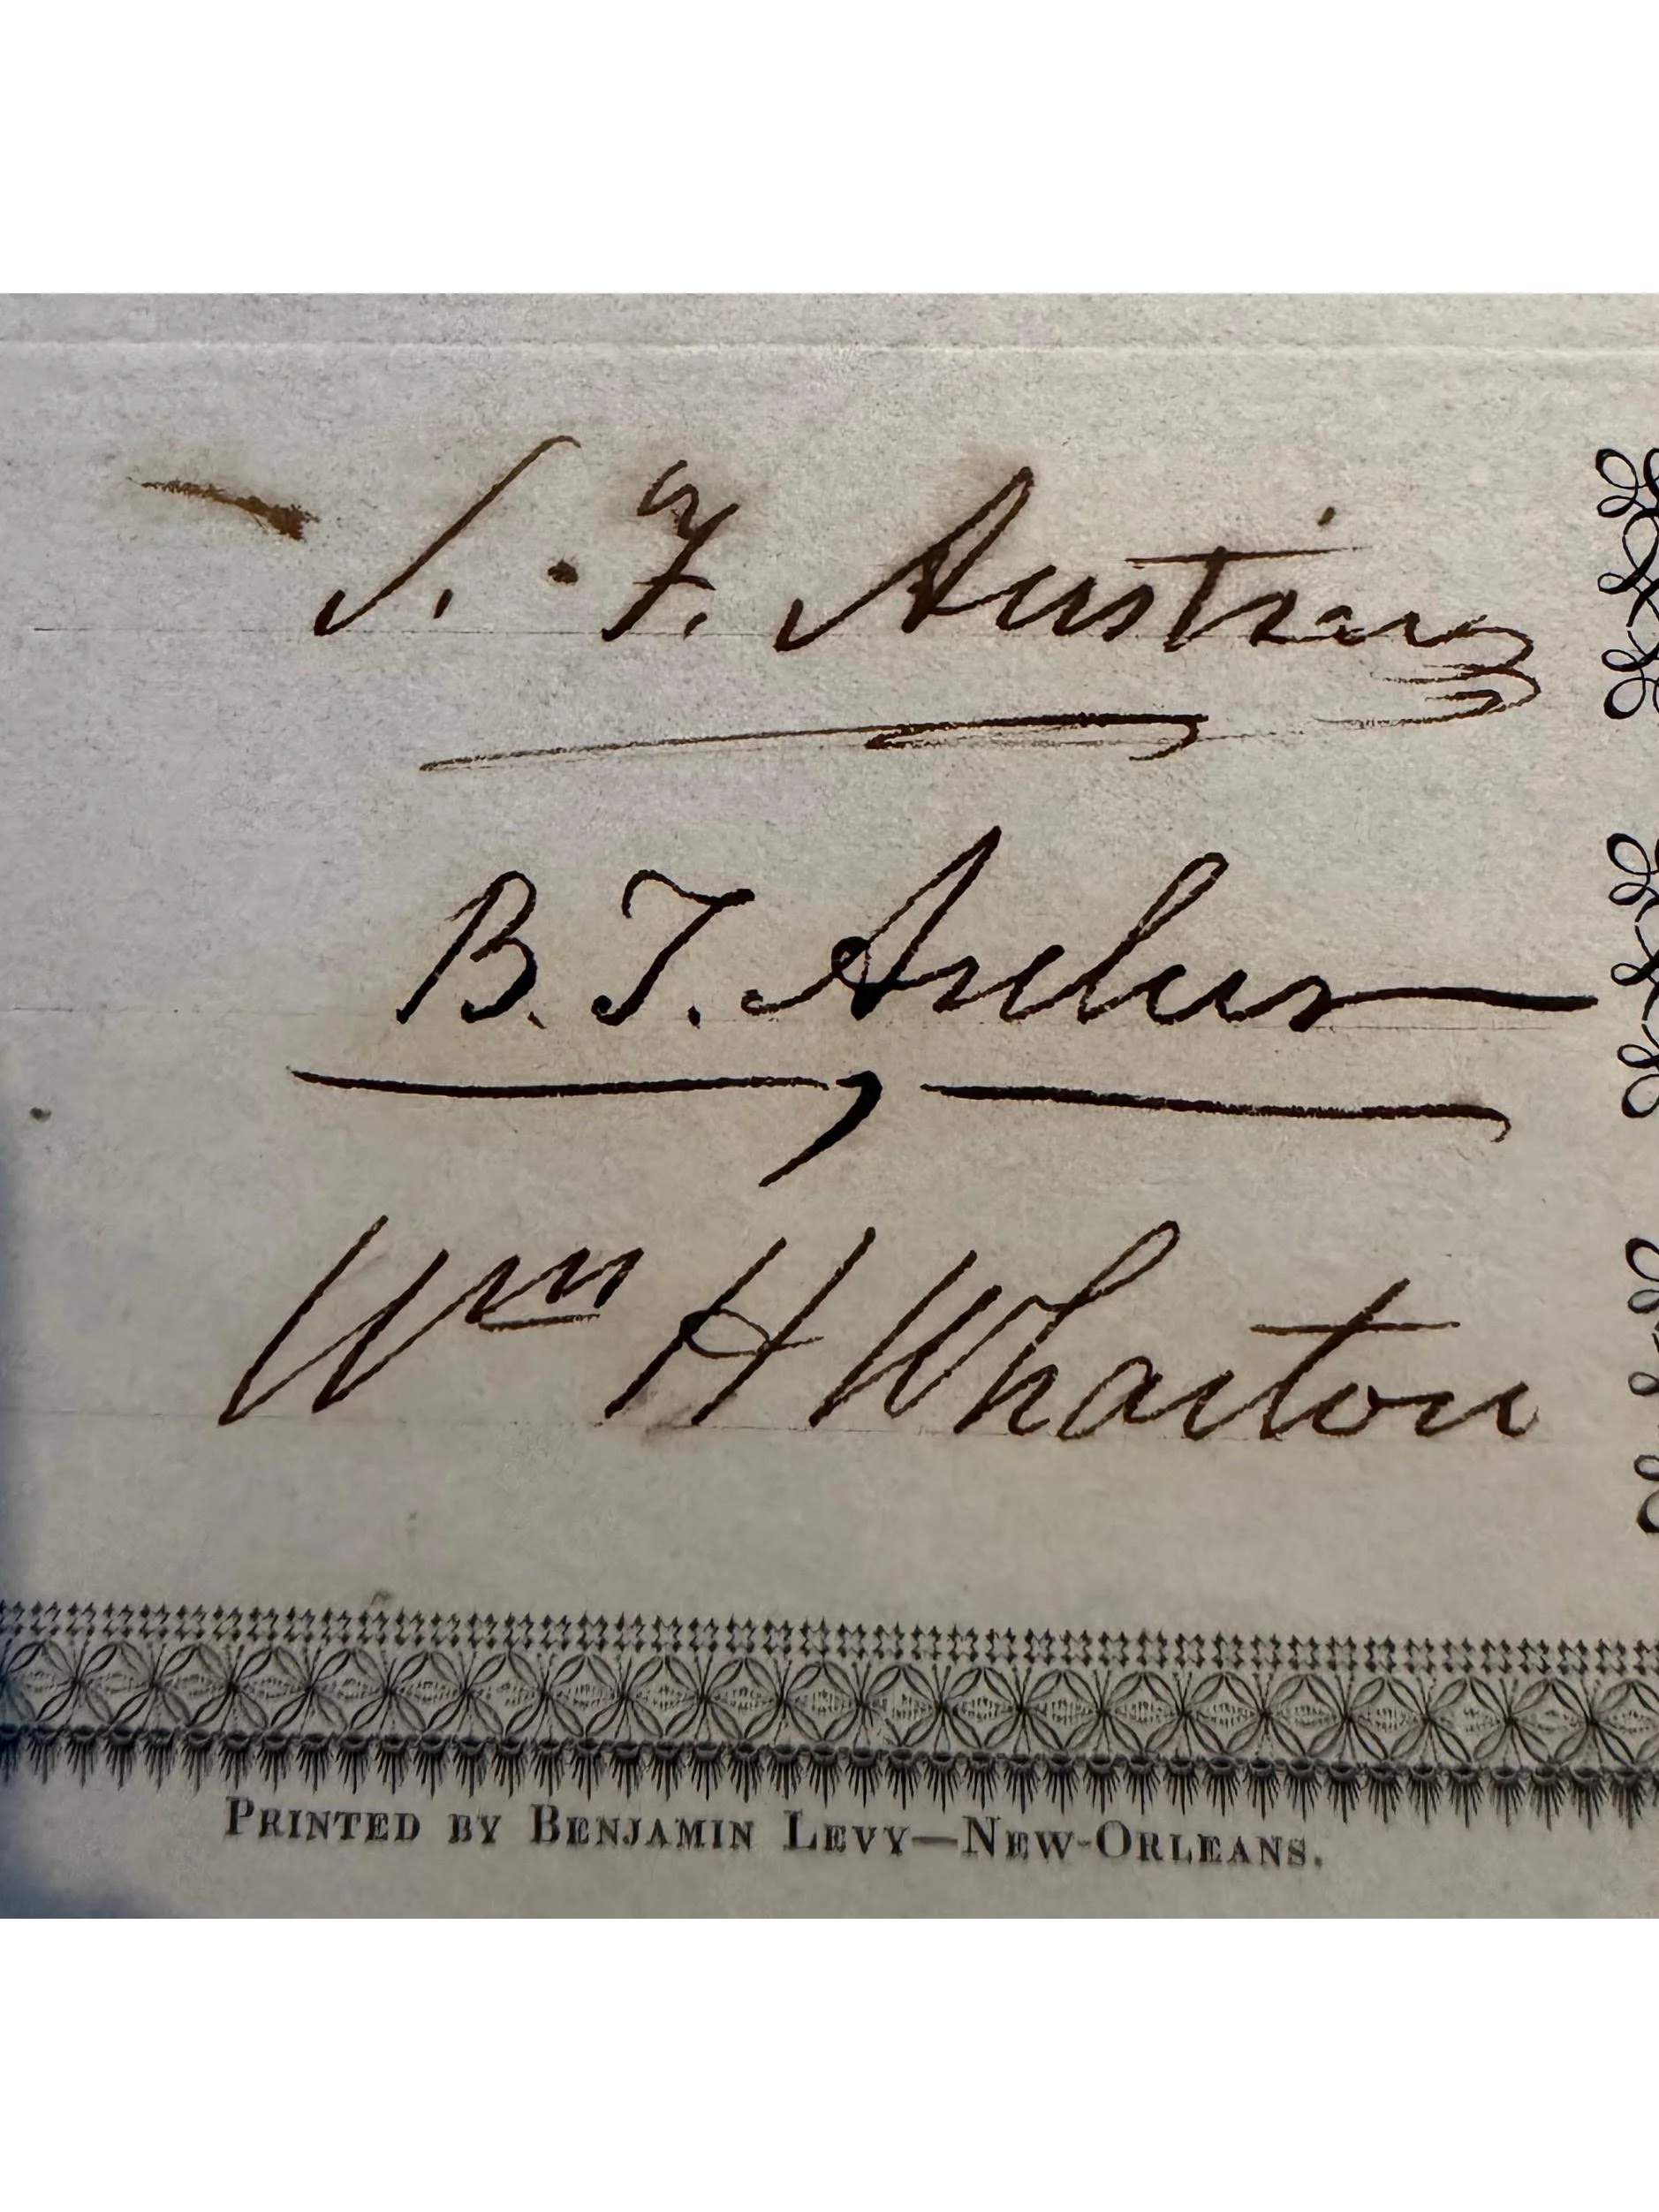 S. F. Austin
B. T. Archer
Wm H Wharton
PRINTED BY BENJAMIN LEVY—NEW-ORLEANS.